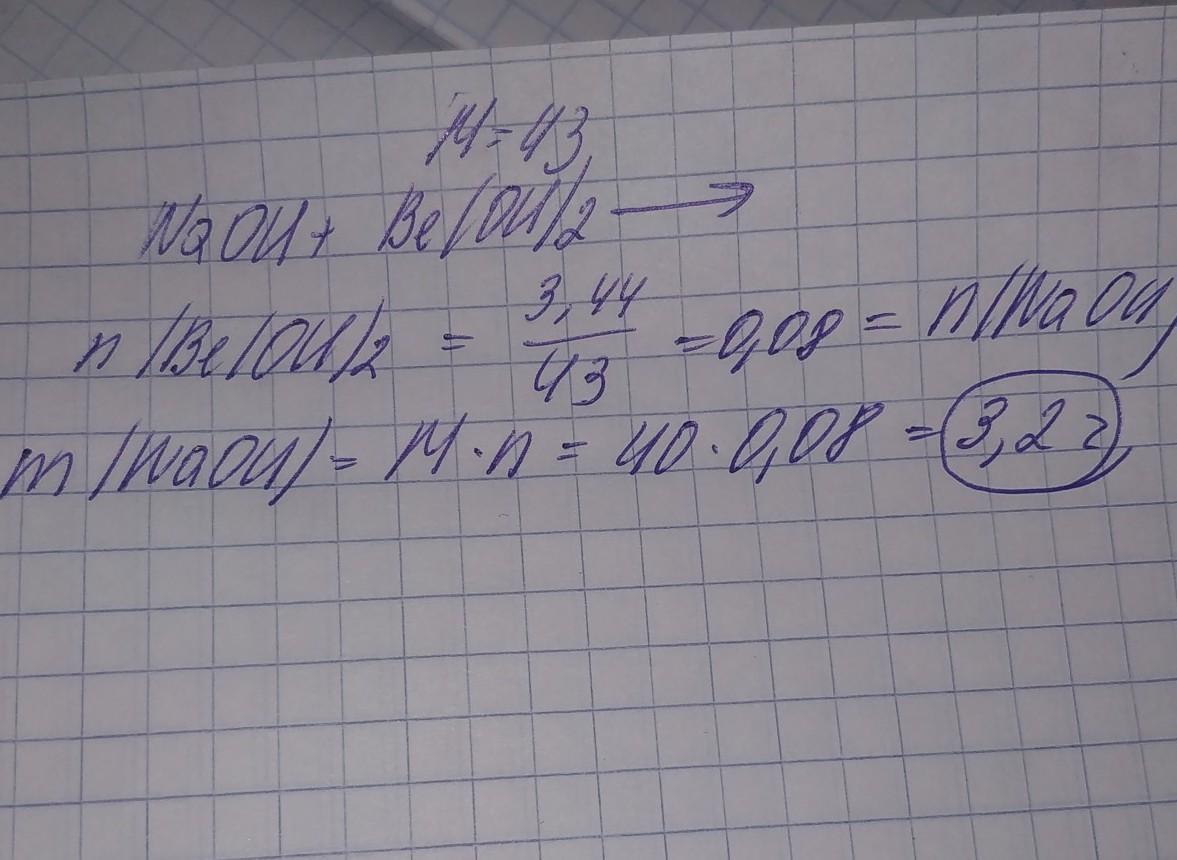 M=43
NaOH+ Be(OH)2 →
n (Be(OH)2 = 3,44/43 =0,08 = n(NaOH)
m (NaOH)= M·n = 40·0,08 = 3,2 г